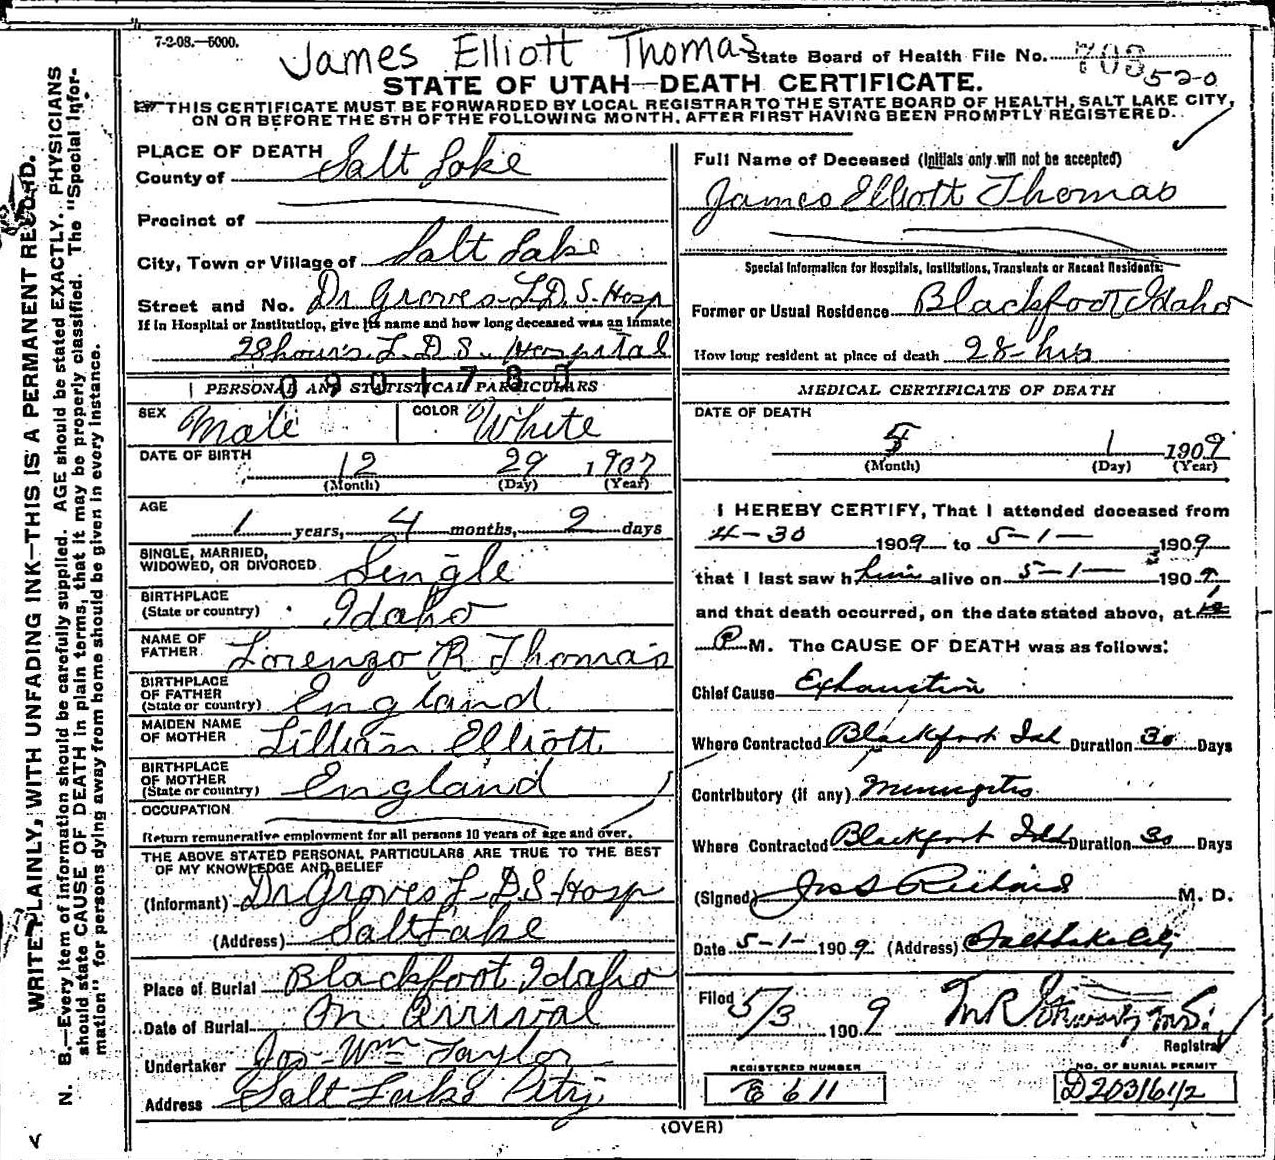 7-2-08.—5000.
James Elliott Thomas
State Board of Health File No. 708 520
STATE OF UTAH—DEATH CERTIFICATE.
THIS CERTIFICATE MUST BE FORWARDED BY LOCAL REGISTRAR TO THE STATE BOARD OF HEALTH, SALT LAKE CITY,
ON OR BEFORE THE 5TH OF THE FOLLOWING MONTH, AFTER FIRST HAVING BEEN PROMPTLY REGISTERED.
WRITE PLAINLY, WITH UNFADING INK—THIS IS A PERMANENT RECORD.
N. B.—Every item of information should be carefully supplied. AGE should be stated EXACTLY. PHYSICIANS
should state CAUSE OF DEATH in plain terms, that it may be properly classified. The "Special Infor-
mation" for persons dying away from home should be given in every instance.
PLACE OF DEATH
County of Salt Lake
Precinct of
City, Town or Village of Salt Lake
Street and No. Dr Groves L.D.S. Hosp
If in Hospital or Institution, give its name and how long deceased was an inmate
28 hours. L.D.S. Hospital
PERSONAL AND STATISTICAL PARTICULARS
SEX Male COLOR White
DATE OF BIRTH 12 29 1907
(Month) (Day) (Year)
AGE
1 years, 4 months, 2 days
SINGLE, MARRIED,
WIDOWED, OR DIVORCED Single
BIRTHPLACE
(State or country) Idaho
NAME OF
FATHER Lorenzo R Thomas
BIRTHPLACE
OF FATHER
(State or country) England
MAIDEN NAME
OF MOTHER Lillian Elliott
BIRTHPLACE
OF MOTHER
(State or country) England
OCCUPATION
Return remunerative employment for all persons 10 years of age and over.
THE ABOVE STATED PERSONAL PARTICULARS ARE TRUE TO THE BEST
OF MY KNOWLEDGE AND BELIEF
(Informant) Dr Groves L-D-S-Hosp
(Address) Salt Lake
Place of Burial Blackfoot Idaho
Date of Burial On Arrival
Undertaker Jos-Wm Taylor
Address Salt Lake City
Full Name of Deceased (Initials only will not be accepted)
James Elliott Thomas
Special Information for Hospitals, Institutions, Transients or Recent Residents:
Former or Usual Residence Blackfoot Idaho
How long resident at place of death 28-hrs
MEDICAL CERTIFICATE OF DEATH
DATE OF DEATH
5 1 1909
(Month) (Day) (Year)
I HEREBY CERTIFY, That I attended deceased from
4-30 1909 to 5-1- 1909
that I last saw him alive on 5-1- 1909
and that death occurred, on the date stated above, at
P M. The CAUSE OF DEATH was as follows:
Chief Cause Exhaustion
Where Contracted Blackfoot Idh Duration 30 Days
Contributory (if any) Meningitis
Where Contracted Blackfoot Idh Duration 30 Days
(Signed) Jos S Richards M. D.
Date 5-1- 1909 (Address) Salt Lake City
Filed 5/3 1909
Registrar
REGISTERED NUMBER
E 611
NO. OF BURIAL PERMIT
D203161/2
(OVER)